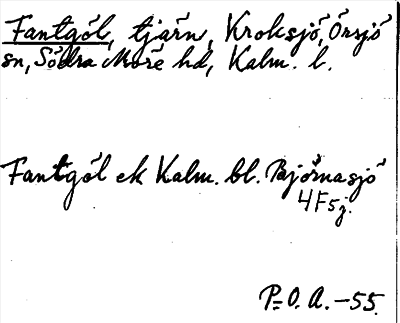 Fantgöl, tjärn, Kroksjö, Örsjö
sn, Södra Möre hd, Kalm. l.
Fantgöl ek Kalm. bl. Björnasjö
4F5j.
P.O.A. -55.